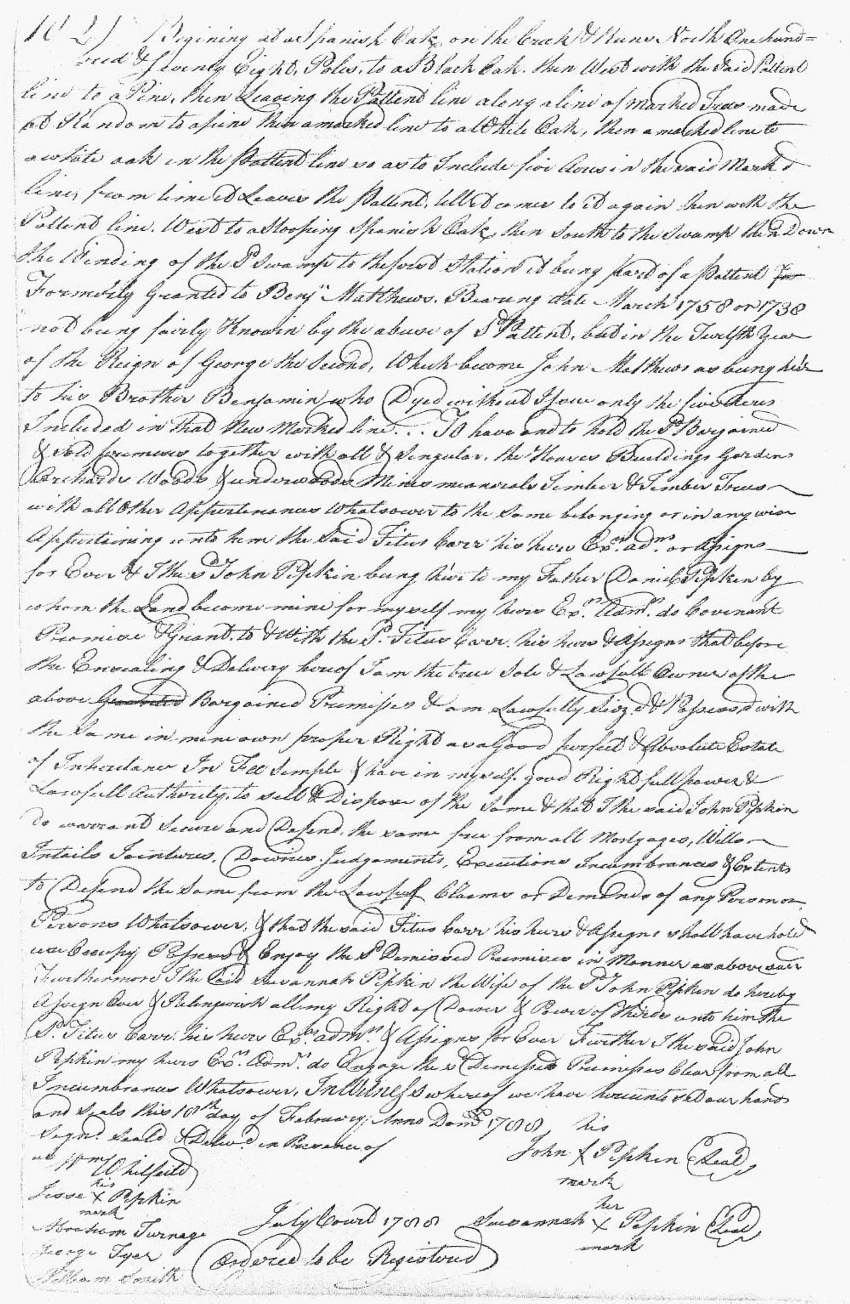 182) Begining at a Spanish Oak on the Creek & Runs North One hund=
=red & Seventy Eight, Poles, to a Black Oak. then West with the said Pattent
line to a Pine, then Leaving the Pattent line along a line of marked Trees made
at Random to a pine then a marked line to a White Oak, then a marked line to
a white oak in the Pattent line so as to Include five Acres in the said Mark'd
line, from time it Leaves the Pattent, till it comes to it again then with the
Pattent line. West to a Stooping Spanish Oak, then South to the Swamp then Down
the Winding of the Sd Swamp to the first Station it being part of a Pattent for
Formerly Granted to Benjn Matthews. Bearing date March 1758 or 1738
not being fairly Known by the abuse of Sd Pattent, but in the Twelfth Year
of the Reign of George the Second, Which become John Matthews as being heir
to his Brother Benjamin who Dyed without Issue only the five Acres
Included in that New Marked line... To have and to hold the Sd Bargained
& Sold premises together with all & Singular, the Houses Buildings Gardens
Orchards Woods & underwoods Mines minnerals Timber & Timber Trees
with all Other Appurtenances Whatsower to the Same belonging or in any wise
Appertaining unto him the Said Titus Carr his heirs Exrs admrs or Assigns
for Ever & I the sd John Pipkin being heir to my Father Daniel Pipkin by
whom the Land become mine for myself my heirs Exrs Admrs do Covenant
Promise & Grant. to & With the Sd Titus Carr. his heirs & Assigns that before
the Ensealing & Delivery hereof I am the true Sole & Lawfull Owner of the
above Bargained Premisses & am Lawfully Siezd & Possessd with
the Same in mine own proper Right as a Good perfect & Absolute Estate
of Inheritance In Fee Simple & have in myself good Right full power &
Lawfull Authority, to sell & Dispose of the Same & that I the said John Pipkin
do warrant Secure and Defend, the same free from all Mortgages, Wills
Intails Jointures, Dowries, Judgements, Executions Incumbrances & Extents
to Defend the Same from the Lawful Claims or Demands of any Person or
Persons Whatsower, & that the said Titus Carr his heirs & Assigns shall have hold
use Occupy Possess & Enjoy the Sd Demissed Premises in Manner as above said
Furthermore I the Said Susannah Pipkin the Wife of the Sd John Pipkin do hereby
Assign Over & Relinquish all my Right of Dower & Power of thirds unto him the
Sd Titus Carr. his heirs Exrs admrs & Assigns for Ever Further I the said John
Pipkin my heirs Exrs Admrs do Engage the Demissed Premisses Clear from all
Incumbrances Whatsower, In Witness whereof we have hereunto Set our hands
and Seals this 18th day of February, Anno Domi 1788
Signd Seald & Delivd in Presence of
his
John X Pipkin Seal
mark
Wm Whitfield
his
Jesse X Pipkin
mark
her
Susannah X Pipkin Seal
mark
Abraham Turnage
George Tyer
William Smith
July Court 1788
Ordered to be Registered